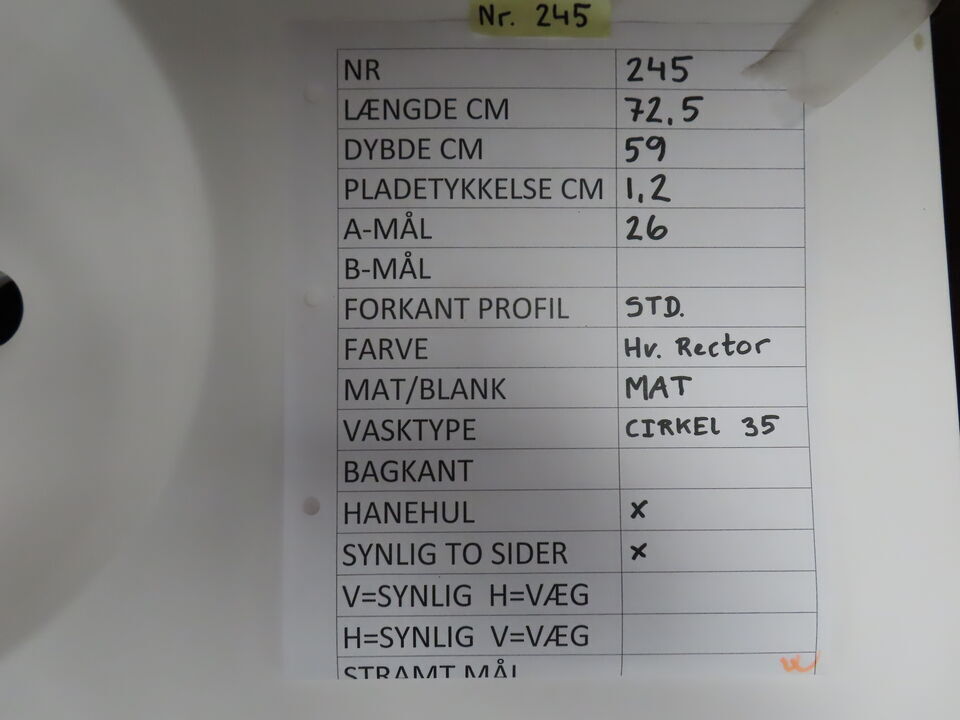 Nr. 245
NR 245
LÆNGDE CM 72,5
DYBDE CM 59
PLADETYKKELSE CM 1,2
A-MÅL 26
B-MÅL
FORKANT PROFIL STD.
FARVE Hv. Rector
MAT/BLANK MAT
VASKTYPE CIRKEL 35
BAGKANT
HANEHUL x
SYNLIG TO SIDER x
V=SYNLIG H=VÆG
H=SYNLIG V=VÆG
STRAMT MÅL